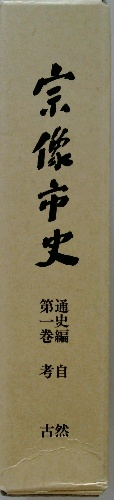 宗像市史
通史編
第一巻
自然
考古